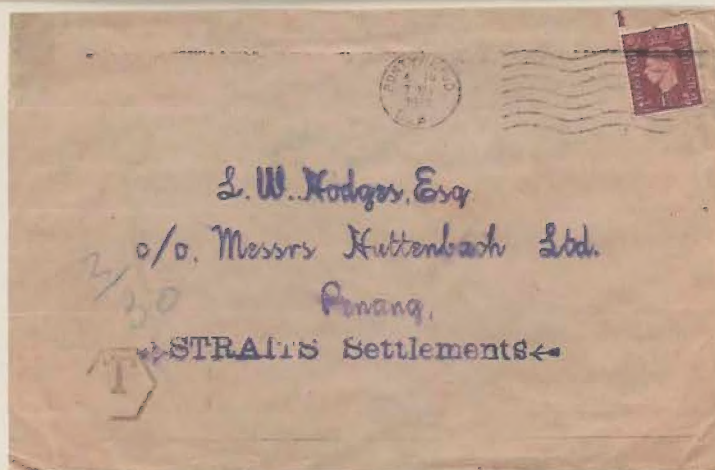 L. W. Hodges, Esq
c/o. Messrs Huttenbach Ltd.
Penang,
STRAITS Settlements
2/
30
T